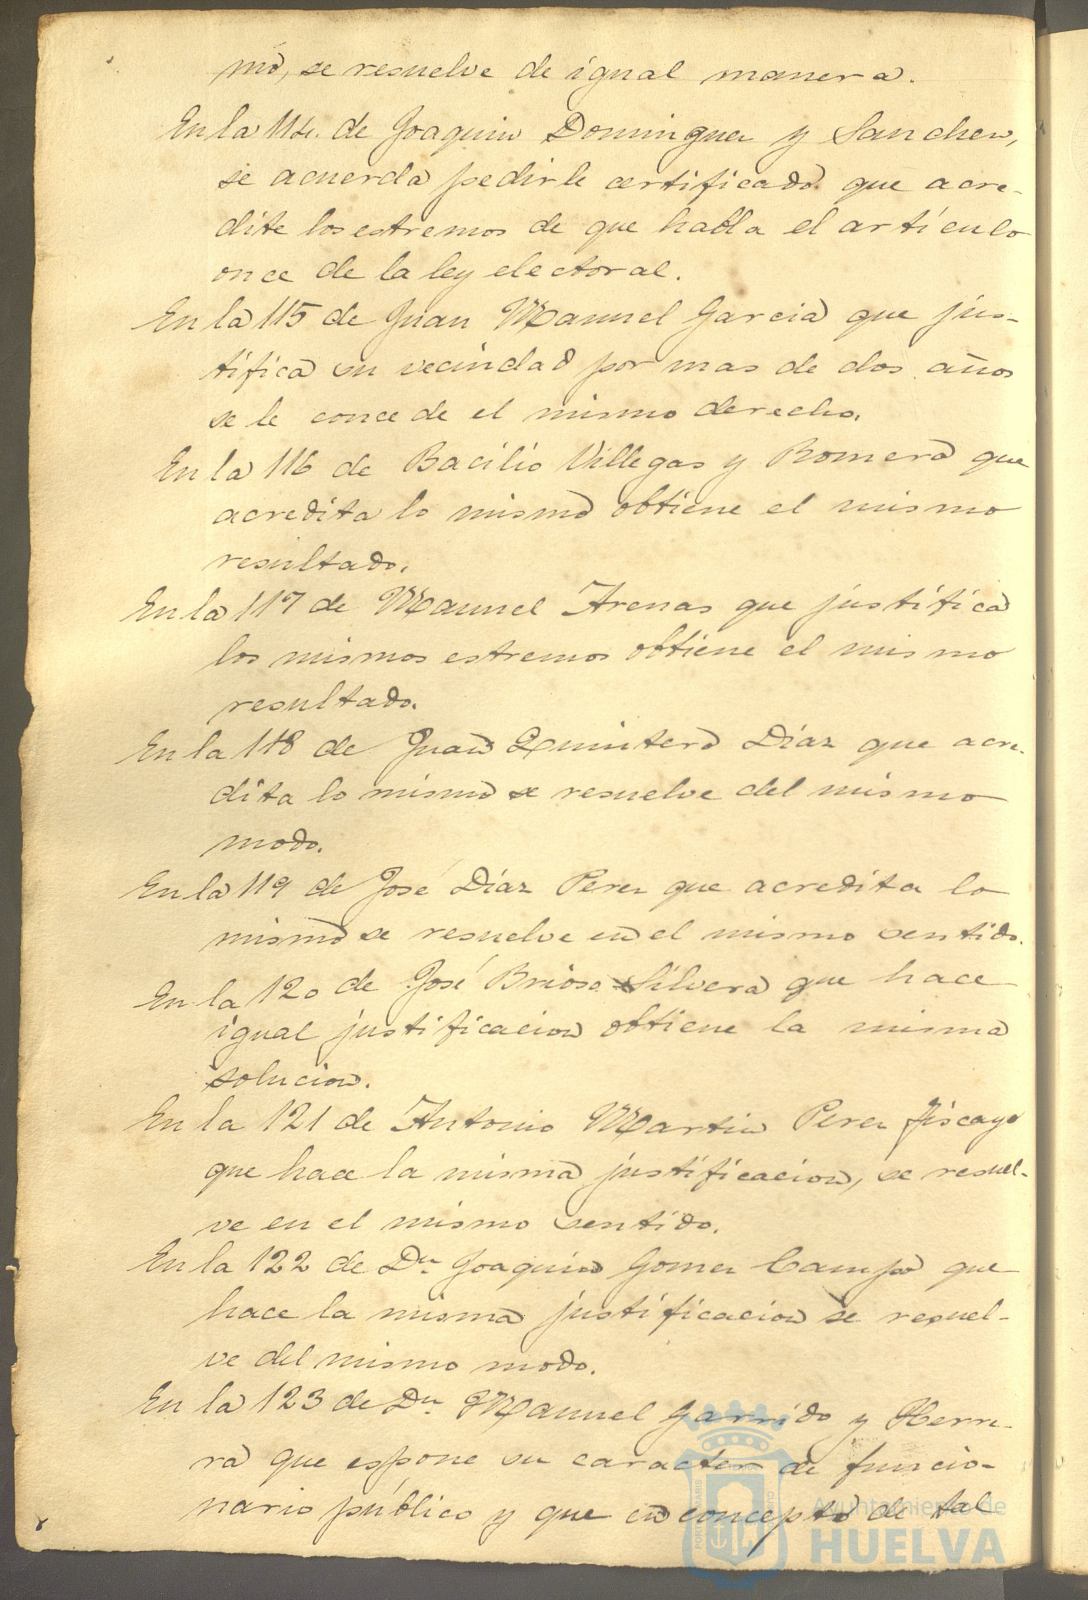 mo, se resuelve de igual manera.
En la 114. de Joaquin Dominguez y Sanchez,
se acuerda pedirle certificado que acre-
dite los estremos de que habla el artículo
once de la ley electoral.
En la 115 de Juan Manuel Garcia que jus-
tifica su vecindad por mas de dos años
se le concede el mismo derecho.
En la 116 de Bacilio Villegas y Romera que
acredita lo mismo obtiene el mismo
resultado.
En la 117 de Manuel Arenas que justifica
los mismos estremos obtiene el mismo
resultado.
En la 118 de Juan Quintero Díaz que acre-
dita lo mismo se resuelve del mismo
modo.
En la 119 de José Díaz Perez que acredita lo
mismo se resuelve en el mismo sentido.
En la 120 de José Brioso Silvera que hace
igual justificacion obtiene la misma
solucion.
En la 121 de Antonio Martin Perez Fiscayo
que hace la misma justificacion, se resuel-
ve en el mismo sentido.
En la 122 de Dn Joaquin Gomez Campo que
hace la misma justificacion se resuel-
ve del mismo modo.
En la 123 de Dn Manuel Garrido y Herre-
ra que espone su caracter de funcio-
nario público y que en concepto de tal
Ayuntamiento de
HUELVA